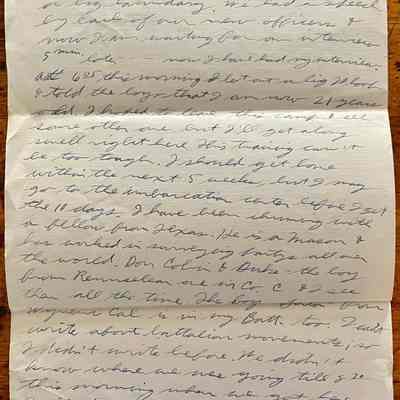 a big laundry. We had a speech
by each of our new officers &
now I am waiting for an interview
5 min. later — now I have had my interview.
At 6:25 this morning I let out a big whoop
& told the boys that I am now 21 years
old. I hated to leave this camp & all
some other one but I'll get along
swell right here. This training can't
be too tough. I should get home
within the next 5 weeks, but I may
go to the embarcation center before I get
the 10 days. I have been chumming with
a fellow from Texas. He is a Mason &
has worked in surveying parties all over
the world. Don, Colin & Duke - the boy
from Rensselear are in Co. C & I see
them all the time. The boy down from
is in my Batt. too. I can't
write about battalion movements; so
I didn't write before. We didn't
know where we were going till 8:30
this morning when we got